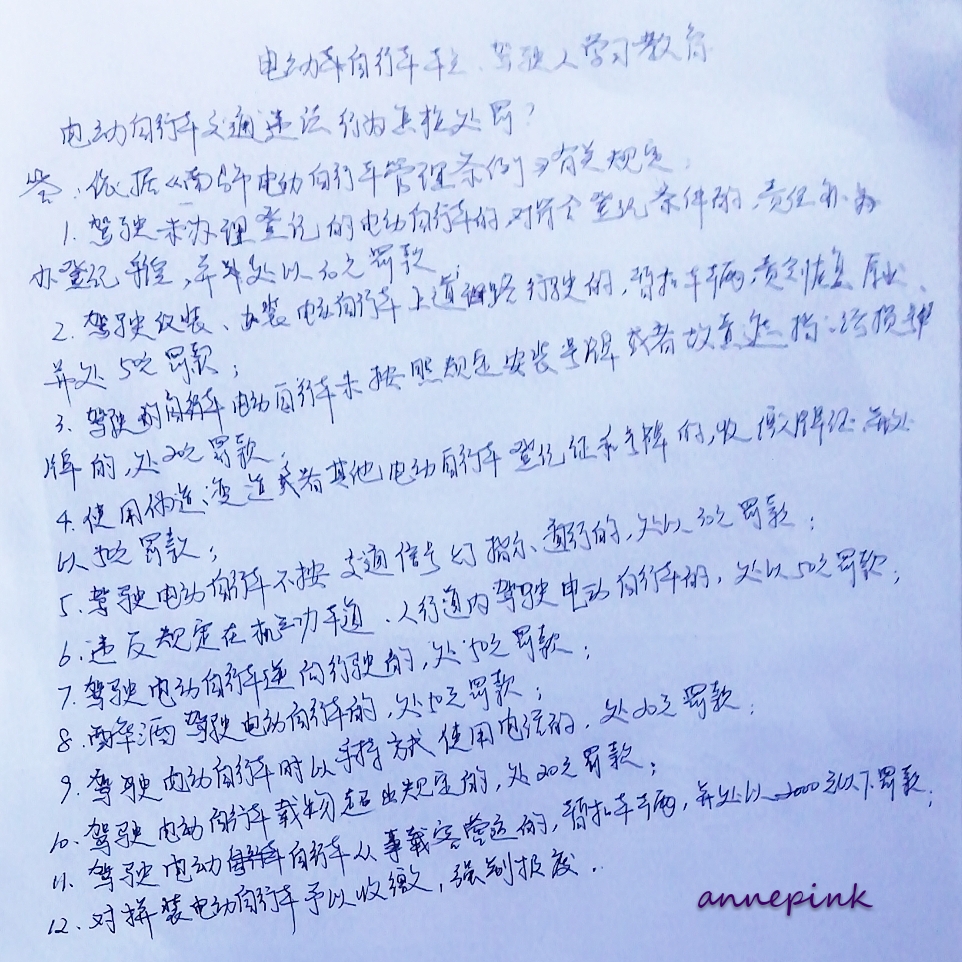 电动车自行车车主、驾驶人学习教育
电动自行车交通违法行为怎样处罚?
答:依据《南宁市电动自行车管理条例》有关规定:
1.驾驶未办理登记的电动自行车的,对符合登记条件的,责任
办登记手续,并处以30元罚款;
2.驾驶改装、加装电动自行车上道路行驶的,暂扣车辆,责令恢复原状、
并处50元罚款;
3.驾驶电动自行车未按照规定安装号牌或者故意遮挡、污损号
牌的,处20元罚款;
4.使用伪造、变造或者其他电动自行车登记证和号牌的,收缴牌证并处
以50元罚款;
5.驾驶电动自行车不按交通信号灯指示通行的,处以30元罚款;
6.违反规定在机动车道、人行道内驾驶电动自行车的,处以50元罚款;
7.驾驶电动自行车逆向行驶的,处50元罚款;
8.醉酒驾驶电动自行车的,处50元罚款;
9.驾驶电动自行车时以手持方式使用电话的,处20元罚款;
10.驾驶电动自行车载物超出规定的,处20元罚款;
11.驾驶电动自行车从事载客营运的,暂扣车辆,并处以2000元以下罚款;
12.对拼装电动自行车予以收缴,强制报废.
annepink